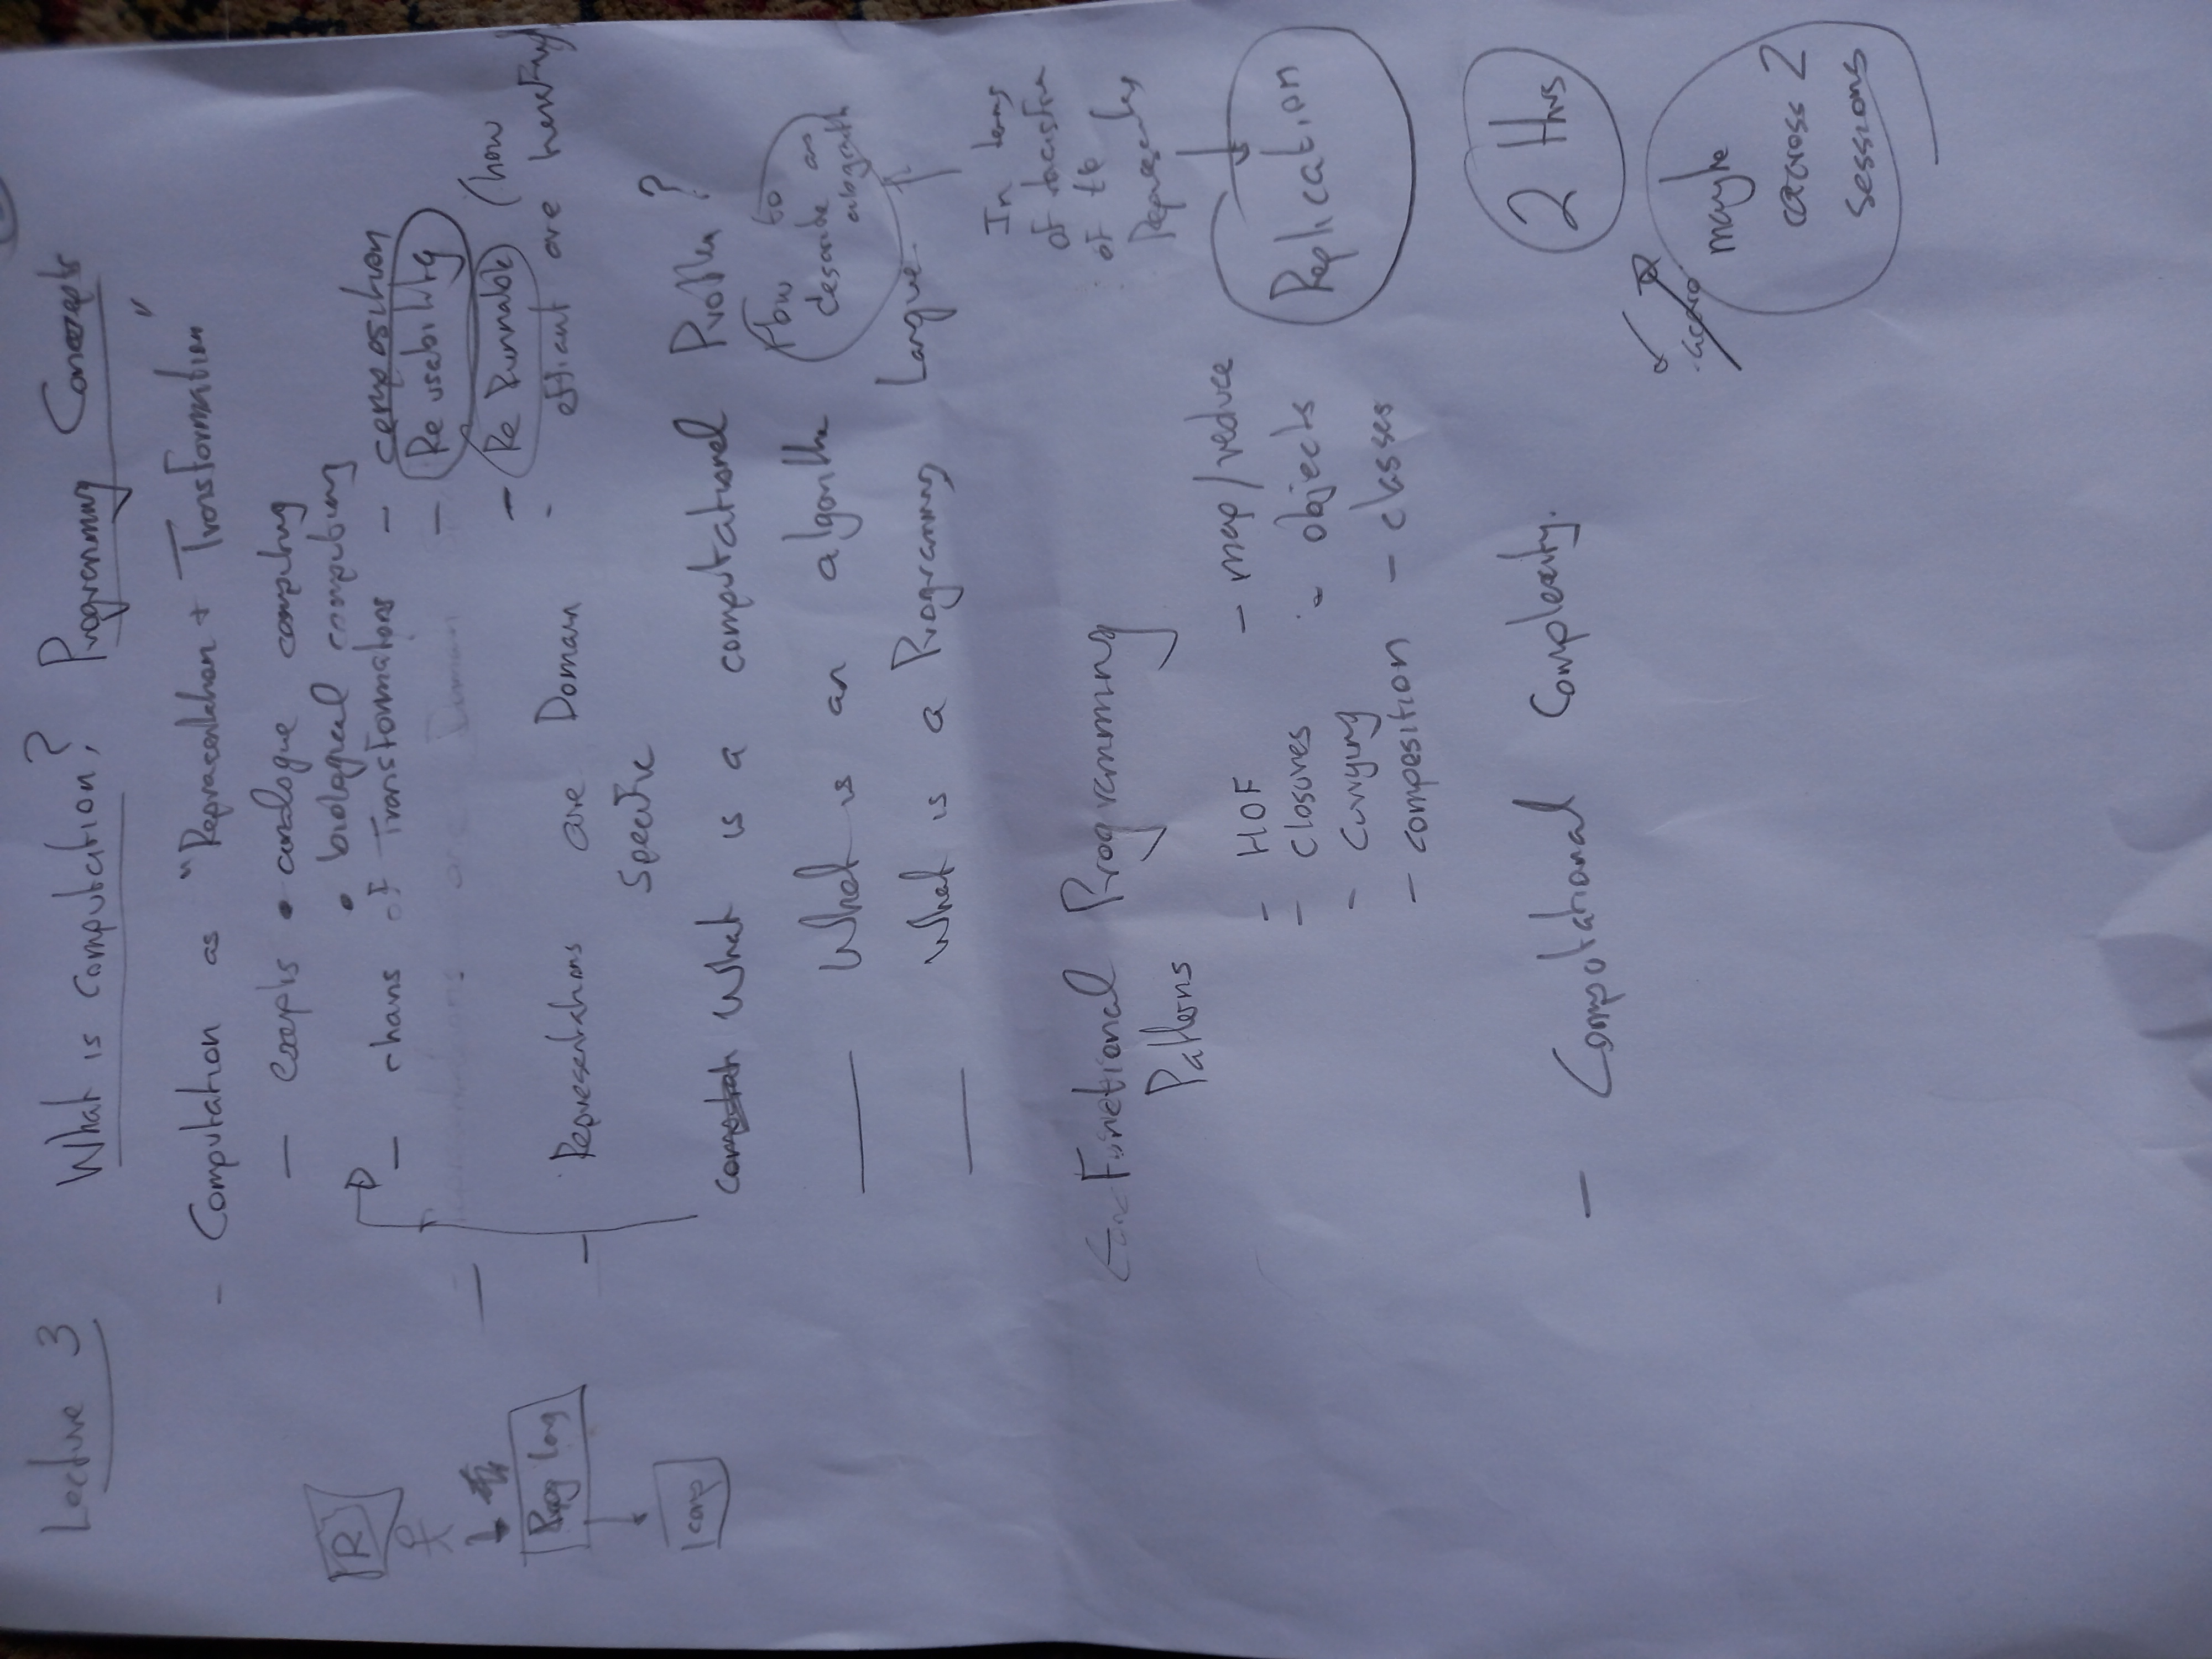 Lecture 3 What is Computation? Programming Concepts
- Computation as "Representation + Transformation"
- • analogue computing
• biological computing
- chains of Transformations - composition
- Re usability
- Re Runnable (how
efficient are
- Representations are Domain
Specific
What is a computational Problem?
What is an algorithm
How to
describe an
What is a Programming Langue
In terms
of
of the
Replication
R
Prog Lang
comp
Functional Programming
Patterns
- HOF - map/reduce
- closures - objects
- currying
- composition - classes
- Computational Complexity.
2 Hrs
maybe
across 2
sessions